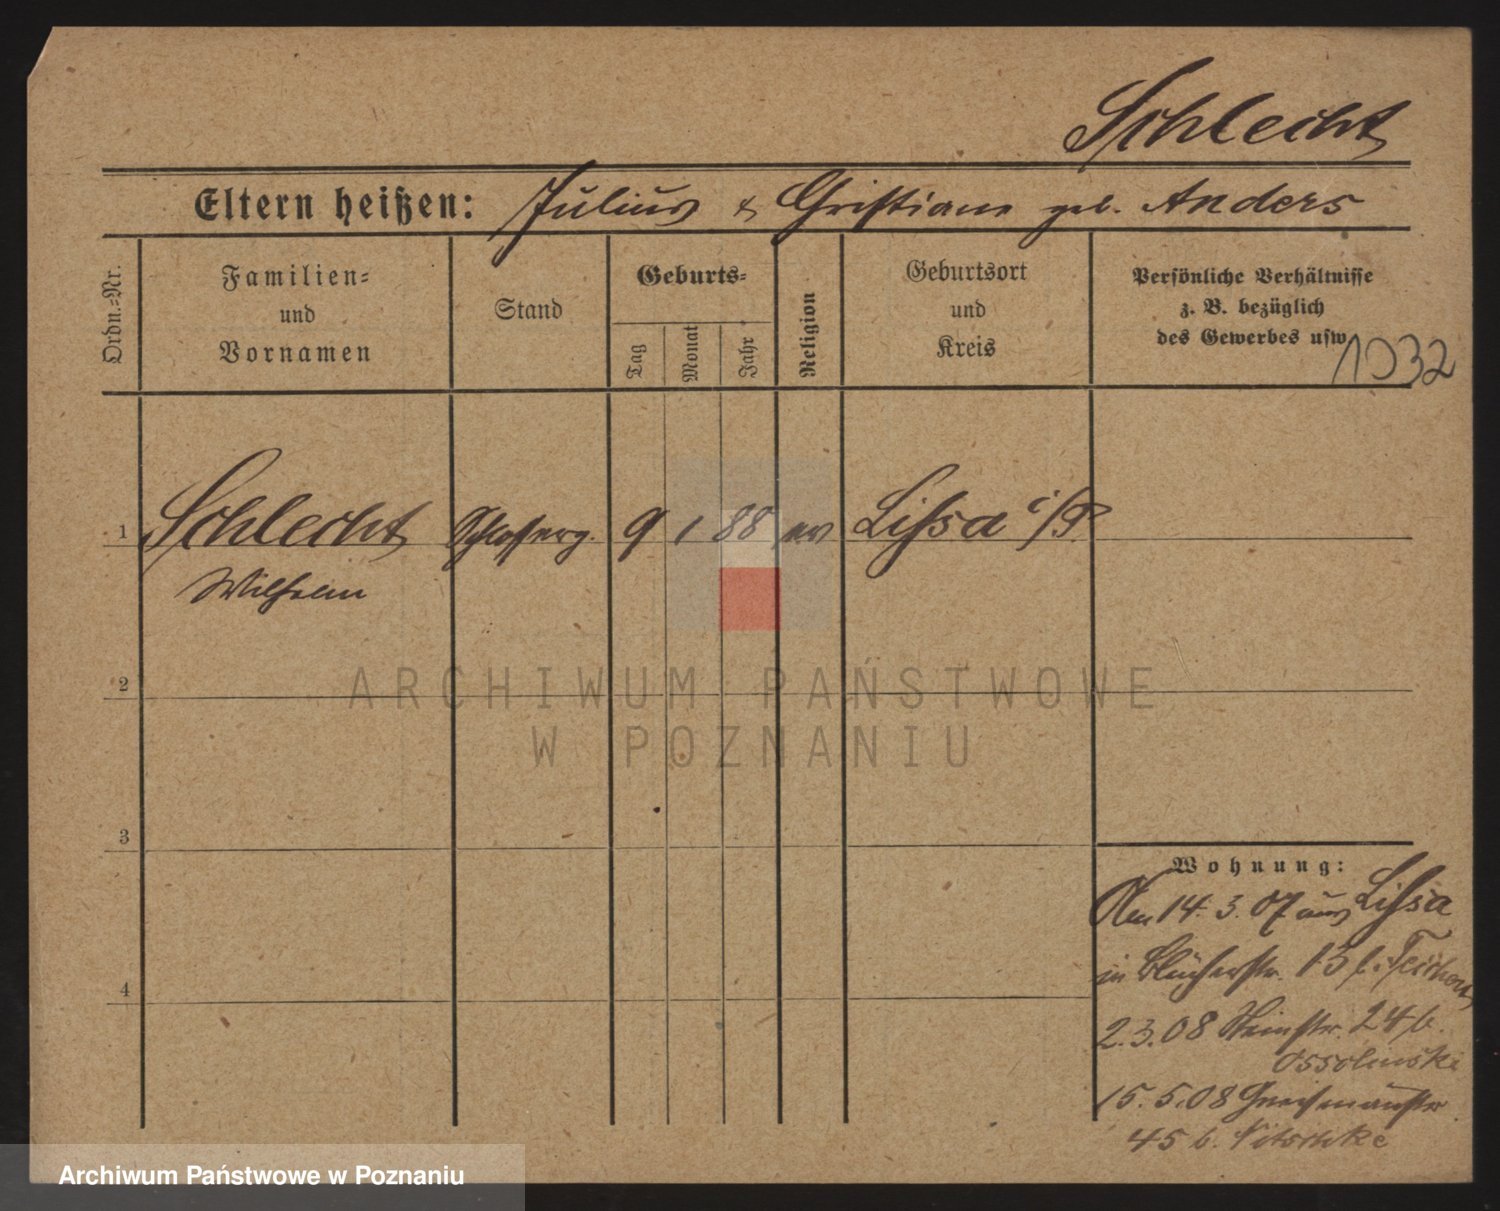 Schlecht
Eltern heißen: Julius & Christiane geb. Anders
Ordn.=Nr.
Familien=
und
Vornamen
Stand
Geburts=
Tag
Monat
Jahr
Religion
Geburtsort
und
Kreis
Persönliche Verhältnisse
z. B. bezüglich
des Gewerbes usw.
1032
1 Schlecht Schlosserg. 9 1 88 ev Lissa i/P.
Wilhelm
2
3
4
Wohnung:
Am 14.3.07 aus Lissa
in Blücherstr. 13 b.
2.3.08 24 b.
Ossolinski
15.5.08 Gneisenaustr
45 b. Nitschke
ARCHIWUM PAŃSTWOWE
W POZNANIU
Archiwum Państwowe w Poznaniu